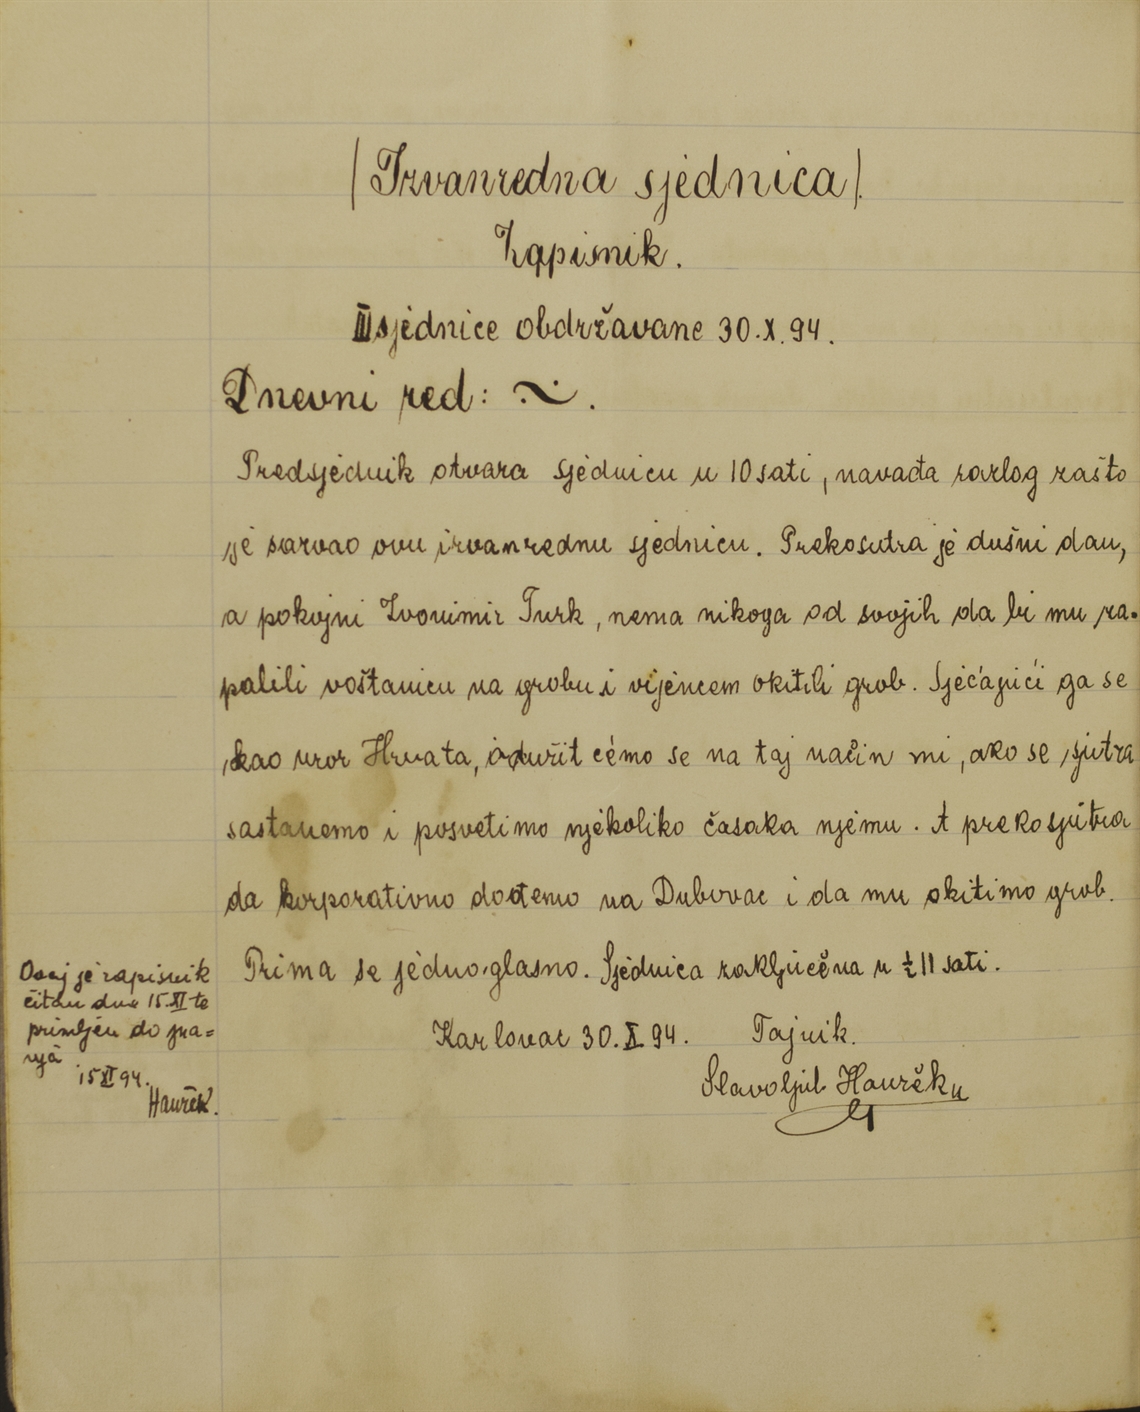 (Izvanredna sjednica).
Zapisnik.
III sjednice obdržavane 30.X.94.
Dnevni red: ~.
Predsjednik otvara sjednicu u 10 sati, navađa razlog zašto
je sazvao ovu izvanrednu sjednicu. Prekosutra je dušni dan,
a pokojni Zvonimir Turk, nema nikoga od svojih da bi mu za-
palili voštanicu na grobu i vijencem okitili grob. Sjećajući ga se
kao uzor Hrvata, odužit ćemo se na taj način mi, ako se sjutra
sastanemo i posvetimo njekoliko časaka njemu. A prekosjutra
da korporativno dođemo na Dubovac i da mu okitimo grob.
Prima se jedno-glasno. Sjednica zaključena u ½ 11 sati.
Karlovac 30.X.94. Tajnik.
Slavoljub
Ovaj je zapisnik
čitan dne 15.XI te
primljen do zna=
nja
15 XI 94.